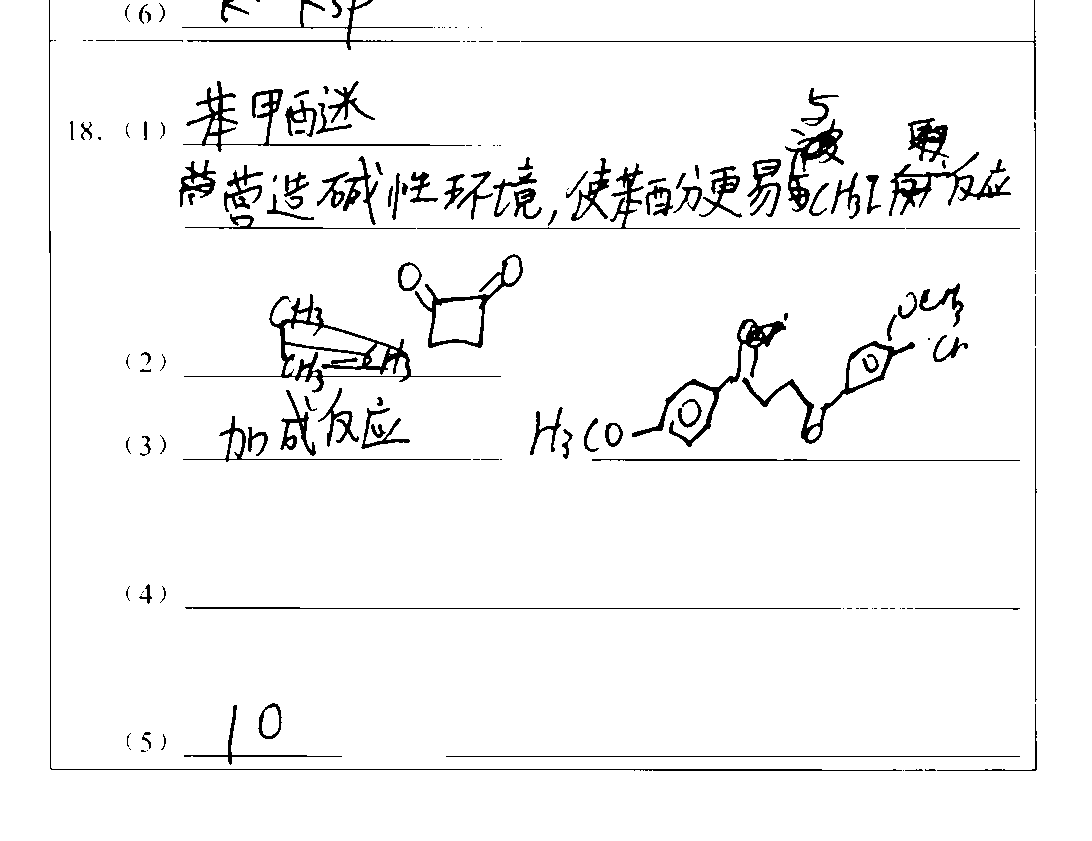 (6)
18. (1) 苯甲醚
营造碱性环境,使苯酚更易与CH3I 反应
(2) CH3 CH3 CH3 O O
(3) 加成反应 H3CO O OCH3
(4)
(5) 10